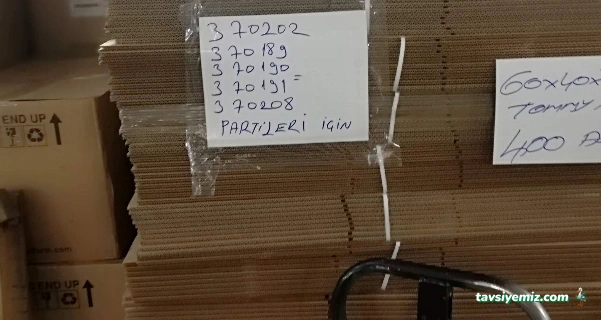 370202
370189
370190 =
370191
370208
PARTiLERİ iÇiN
60x40x
TOMMY
400
END UP
END UP
tavsiyemiz.com